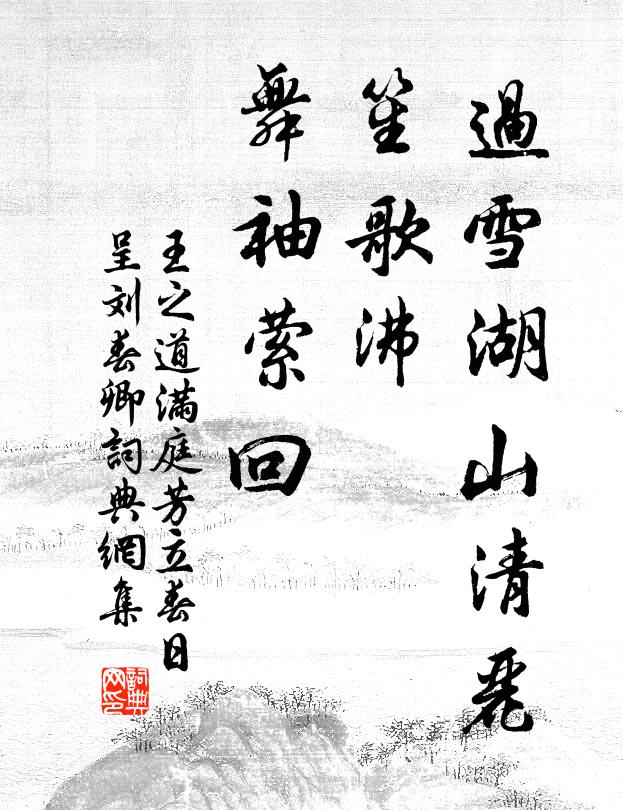 過雪湖山清麗
笙歌沸
舞袖萦回
王之道滿庭芳立春日
呈刘春卿詞典網集
詞典網印